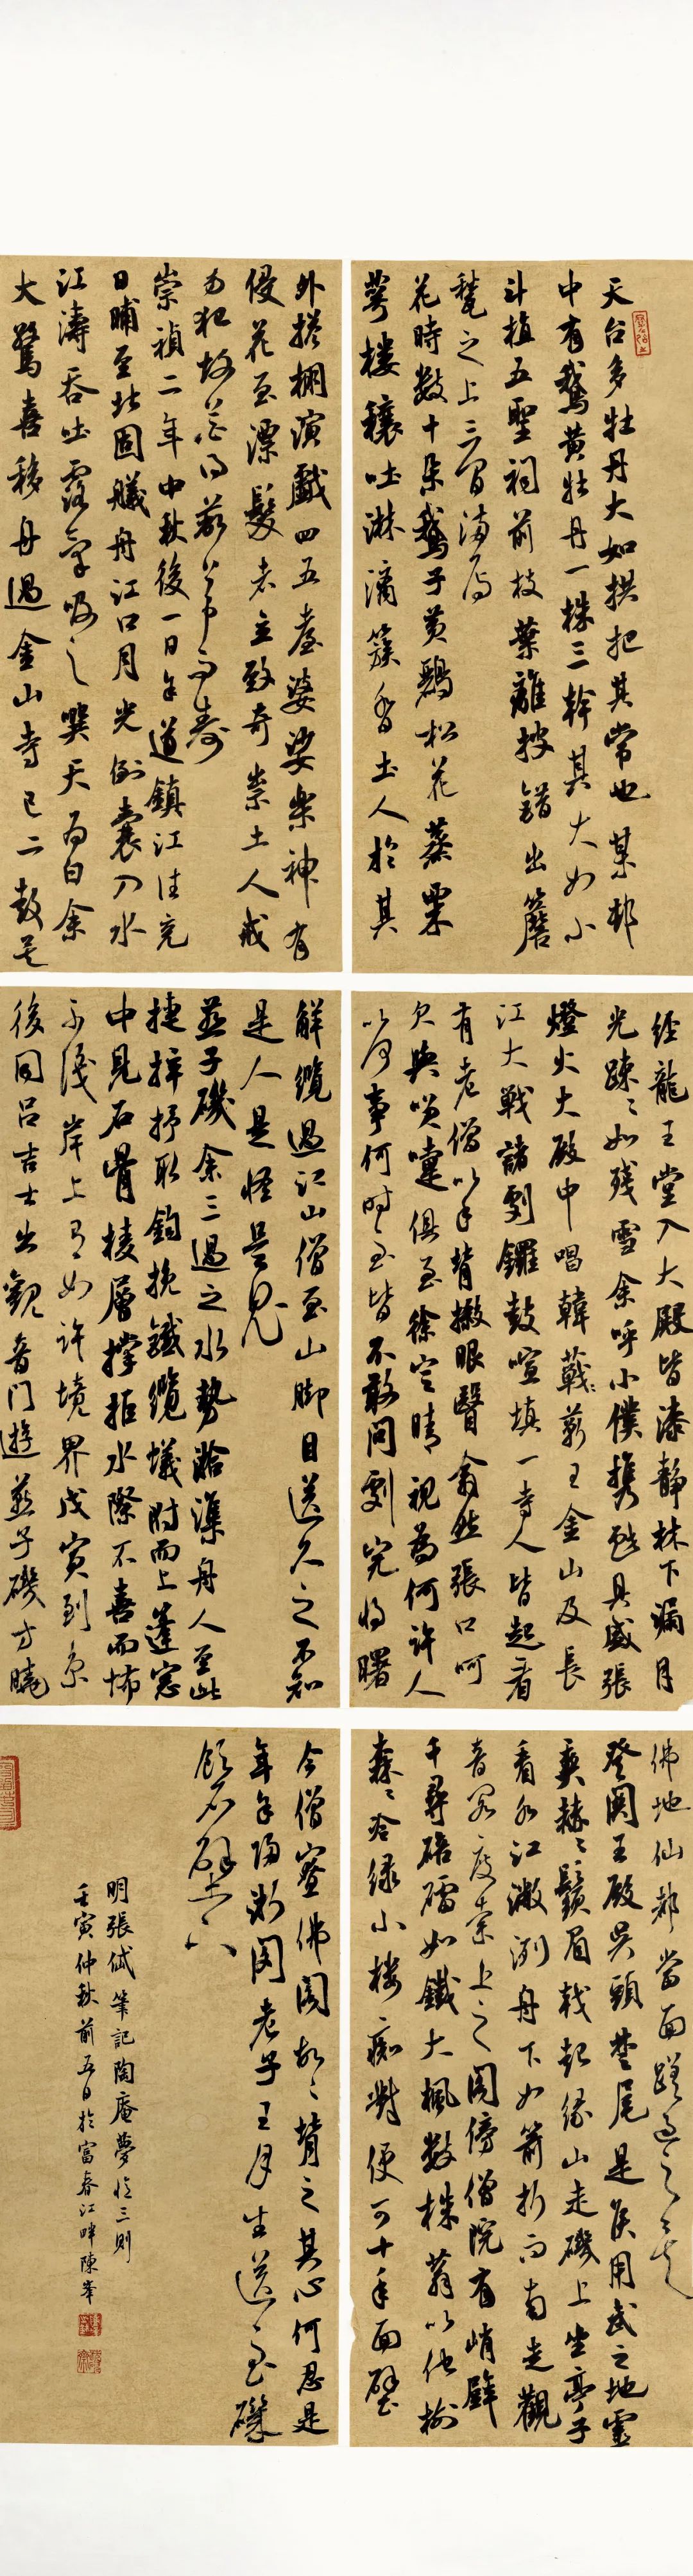 天台多牡丹大如拱把其常也某邨
中有鵞黄牡丹一株三幹其大如小
斗植五聖祠前枝葉離披錯出簷
甃之上三間滿焉
花時數十朵鵞子黄鸝松花蒸栗
萼樓穰吐淋漓簇沓土人於其
外搭棚演戲四五臺婆娑樂神有
侵花至漂髮者立致奇祟土人戒
勿犯故花得蔽芾而壽
崇禎二年中秋後一日余道鎮江往兖
日晡至北固艤舟江口月光倒囊入水
江濤吞吐露氣吸之噀天為白余
大驚喜移舟過金山寺已二鼓矣
經龍王堂入大殿皆漆靜林下漏月
光疎〻如殘雪余呼小僕携戲具盛張
燈火大殿中唱韓蘄王金山及長
江大戰諸劇鑼鼓喧填一寺人皆起看
有老僧以手背摋眼瞖翕然張口呵
欠與笑嚏俱至徐定睛視為何許人
以何事何時至皆不敢問劇完将曙
解纜過江山僧至山脚目送久之不知
是人是怪是鬼
燕子磯余三過之水勢湁潗舟人至此
捷捽抒取鈎挽鐵纜蟻附而上篷窓
中見石骨棱層撑拒水際不喜而怖
不識岸上有如許境界戊寅到京
後同吕吉士出觀音門遊燕子磯方曉
佛地仙都當面蹉過之矣
登関王殿吳頭楚尾是侯用武之地靈
爽赫〻鬚眉戟起缘山走磯上坐亭子
看水江潎洌舟下如箭折而南走觀
音閣度索上之閣傍僧院有峭壁
千尋碚礌如鐵大楓數株蓊以他樹
森〻冷緑小樓痴對便可十年面壁
今僧寮佛閣故〻背之其心何忍是
年余歸浙閔老子王月生送至磯
飲石壁下
明張岱筆記陶庵夢憶三則
壬寅仲秋前五日於富春江畔陳峯